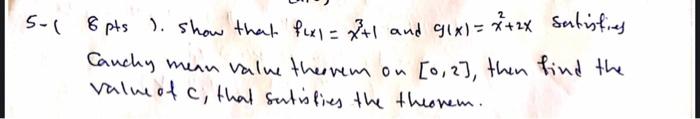 5-( 8 pts ). show that f(x) = x³+1 and g(x) = x²+2x Satisfies
Cauchy mean value theorem on [0,2], then find the
value of c, that satisfies the theorem.